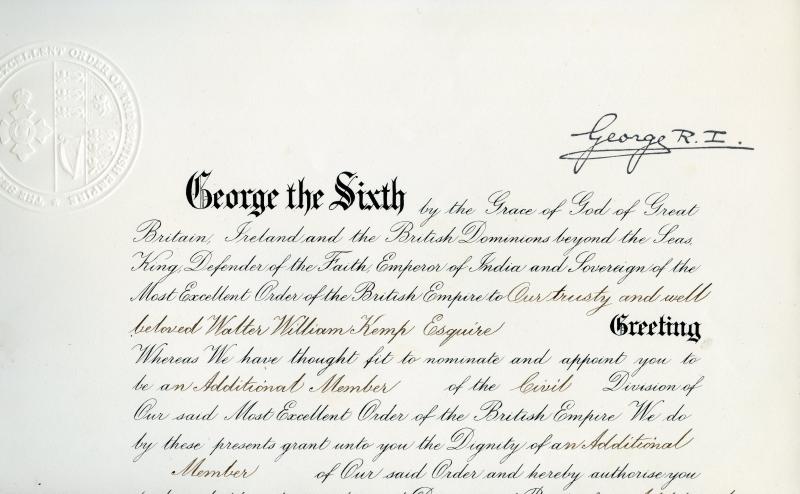 EXCELLENT ORDER OF THE BRITISH EMPIRE
George R.I.
George the Sixth by the Grace of God of Great
Britain, Ireland and the British Dominions beyond the Seas,
King, Defender of the Faith, Emperor of India and Sovereign of the
Most Excellent Order of the British Empire to Our trusty and well
beloved Walter William Kemp Esquire Greeting
Whereas We have thought fit to nominate and appoint you to
be an Additional Member of the Civil Division of
Our said Most Excellent Order of the British Empire We do
by these presents grant unto you the Dignity of an Additional
Member of Our said Order and hereby authorise you